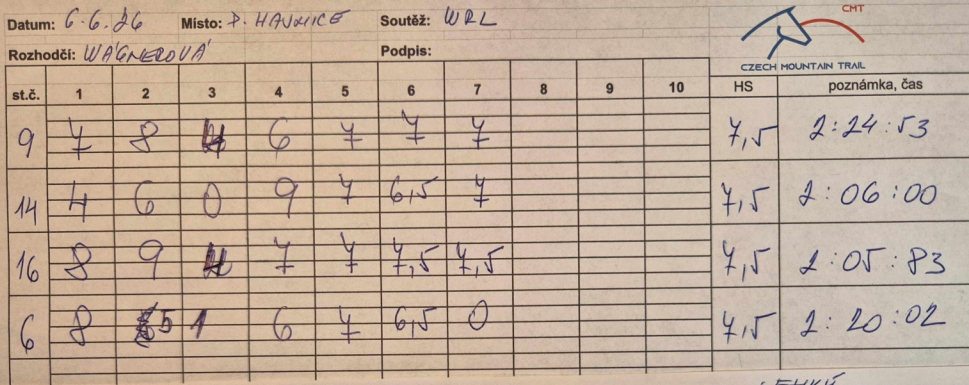 Datum: 6.6.26 Místo: D. HAVLVICE Soutěž: WRL
CMT
Rozhodčí: WAGNEROVÁ Podpis:
CZECH MOUNTAIN TRAIL
st.č. 1 2 3 4 5 6 7 8 9 10 HS poznámka, čas
9 7 8 4 6 7 7 7 7,5 2:24:53
14 4 6 0 9 7 6,5 7 7,5 2:06:00
16 8 9 4 7 7 7,5 7,5 7,5 2:05:83
6 8 5 1 6 7 6,5 0 7,5 2:20:02